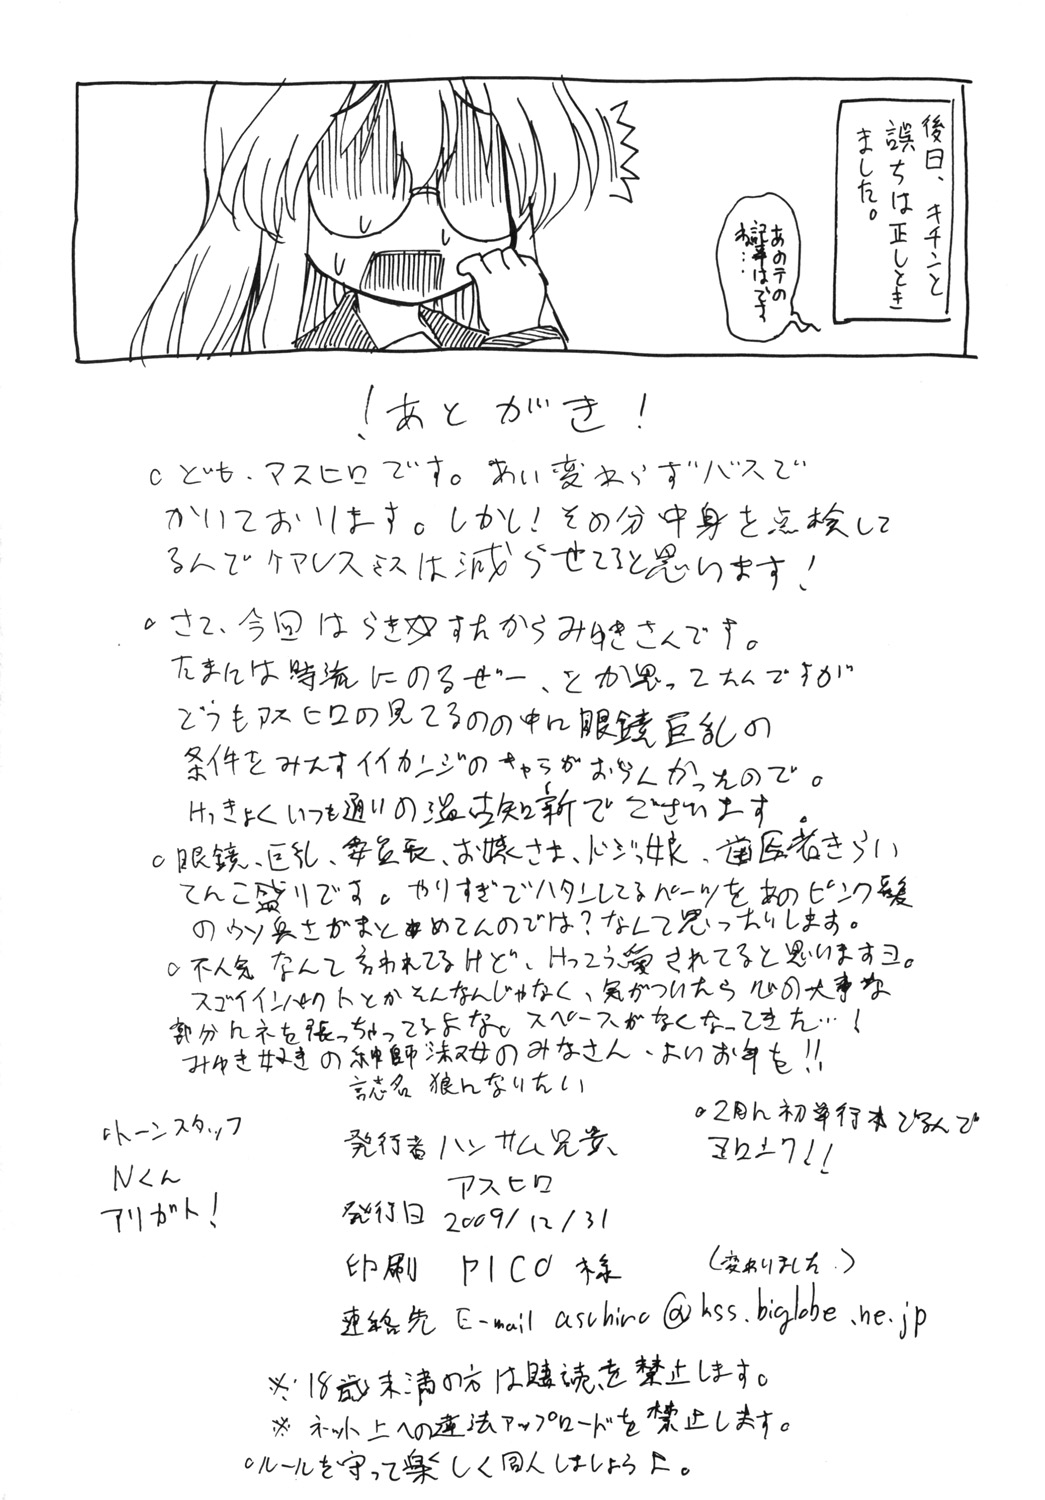 後日、キチンと
誤ちは正しとき
ました。
あのテの
記事はです
ね…
!あとがき!
○ども、アスヒロです。あい変わらずバスで
かいております。しかし!その分中身を点検して
るんでケアレスミスは減らせてると思います!
○さて、今回はらき☆すたからみゆきさんです。
たまには時流にのるぜー、とか思ってたんですが
どうもアスヒロの見てるのの中に眼鏡巨乳の
条件をみたすイイカンジのキャラがおらんかったので。
けっきょくいつも通りの温古知新でございます。
○眼鏡、巨乳、委員長、お嬢さま、ドジっ娘、歯医者きらい
てんこ盛りです。やりすぎでハタンしてるパーツをあのピンク髪
のウソ臭さがまとめてんのでは?なんて思ったりします。
○不人気なんて言われてるけど、けっこう愛されてると思いますヨ。
スゴイインパクトとかそんなんじゃなく、気がついたら心の大事な
部分にネを張っちゃってるよな。スペースがなくなってきた…!
みゆき好きの紳師淑女のみなさん、よいお年を!!
誌名 狼になりたい
○トーンスタッフ
Nくん
アリガト!
発行者 ハンサム兄貴、
アスヒロ
発行日 2009/12/31
印刷 PICO様
連絡先 E-mail asuhiro@kss.biglobe.ne.jp
(変わりました。)
○2月に初単行本でるんで
ヨロシク!!
※18歳未満の方は購読を禁止します。
※ネット上への違法アップロードを禁止します。
○ルールを守って楽しく同人しましょうよ。